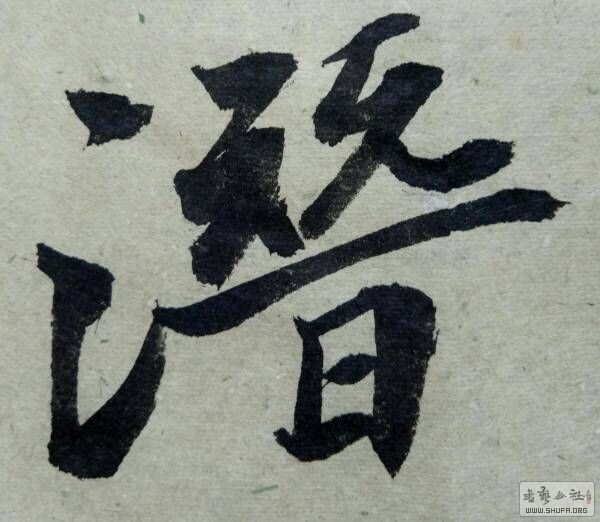 潛
書藝公社
WWW.SHUFA.ORG